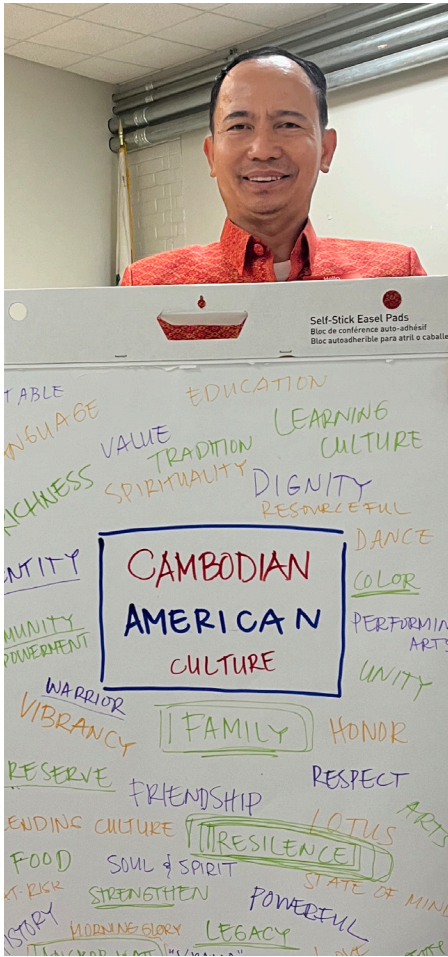 Self-Stick Easel Pads
Bloc de conférence auto-adhésif
Bloc autoadherible para atril o caballe
TABLE
EDUCATION
NGUAGE
VALUE
LEARNING
CULTURE
TRADITION
RICHNESS
SPIRITUALITY
DIGNITY
RESOURCEFUL
DANCE
NTITY
CAMBODIAN
AMERICAN
CULTURE
COLOR
MUNITY
POWERMENT
PERFORMIN
ARTS
UNITY
WARRIOR
VIBRANCY
FAMILY
HONOR
RESERVE
FRIENDSHIP
RESPECT
ARTS
ENDING CULTURE
RESILENCE
LOTUS
FOOD
SOUL & SPIRIT
STATE OF MIN
T-RISK
STRENGTHEN
POWERFUL
ISTORY
MORNING GLORY
LEGACY